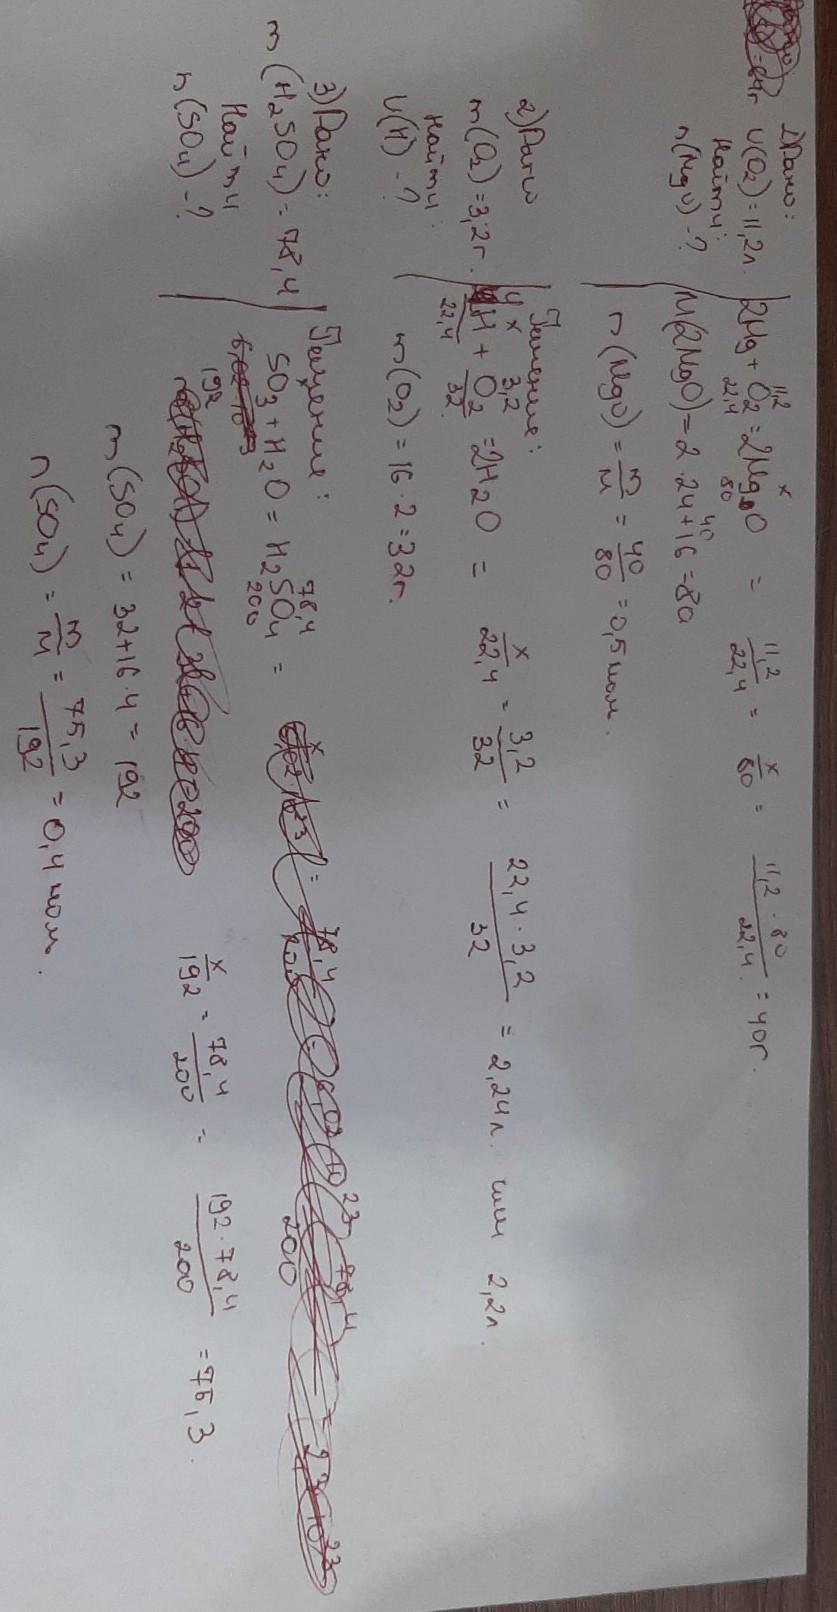 1) Дано:
V(O₂) = 11,2л.
Найти:
n(MgO) - ?
11,2 x
2Mg + O₂ = 2MgO = 11,2/22,4 = x/80 = 11,2 · 80/22,4 = 40г.
22,4 80
M(2MgO) = 2 · 24 + 16 = 80
40
n(MgO) = m/M = 40/80 = 0,5 мол.
2) Дано
m(O₂) = 3,2г.
Найти:
V(H) - ?
Решение:
x 3,2
H + O₂ = 2H₂O = x/22,4 = 3,2/32 = 22,4 · 3,2/32 = 2,24л. или 2,2л.
22,4 32
m(O₂) = 16 · 2 = 32г.
3) Дано:
m(H₂SO₄) = 78,4
Найти
n(SO₄) - ?
Решение:
78,4
SO₃ + H₂O = H₂SO₄ =
192 200
x/192 = 78,4/200 = 192 · 78,4/200 = 75,3.
m(SO₄) = 32 + 16 · 4 = 192
n(SO₄) = m/M = 75,3/192 = 0,4 мол.